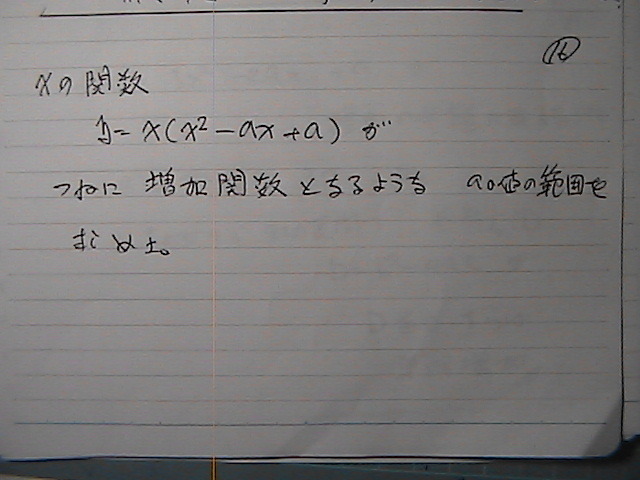 16
xの関数
y=x(x²-ax+a)が
つねに 増加関数となるような aの値の範囲を
求めよ。